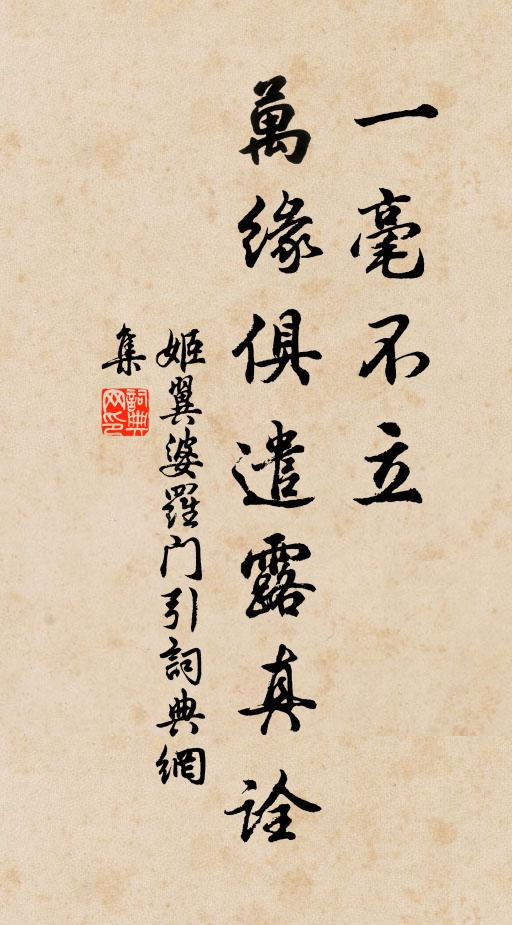 一毫不立
萬緣俱遣露真詮
姬翼婆羅门引詞典網
集
詞典
网印